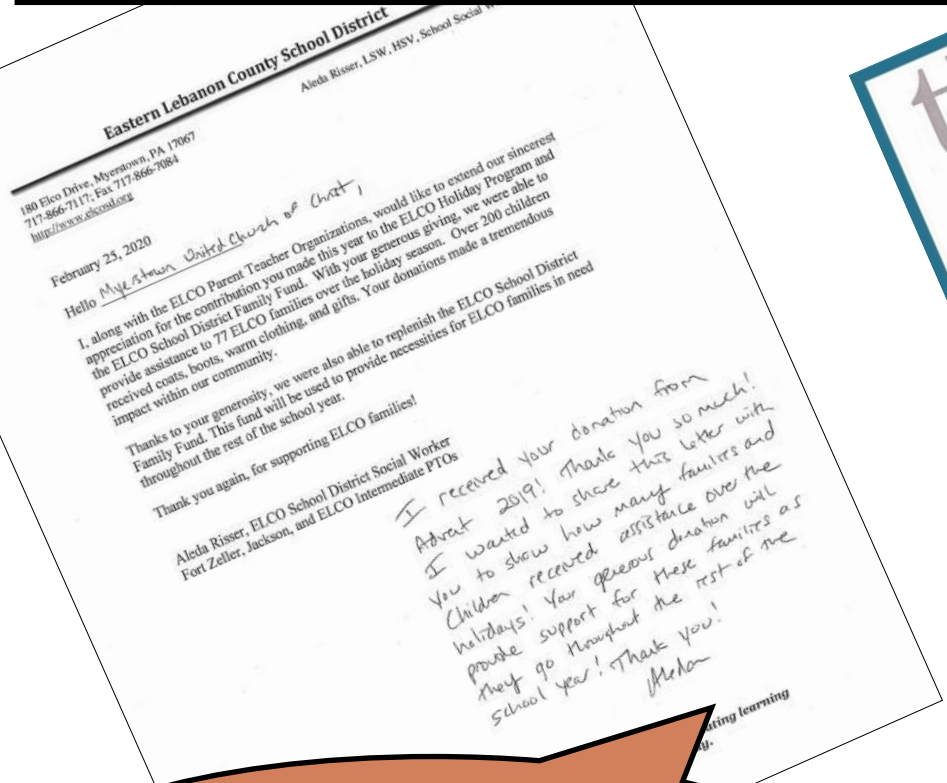 Eastern Lebanon County School District
Aleda Risser, LSW, HSV, School Social
180 Elco Drive, Myerstown, PA 17067
717-866-7117; Fax 717-866-7084
http://www.elcosd.org
February 25, 2020
Hello Myerstown United Church of Christ,
I, along with the ELCO Parent Teacher Organizations, would like to extend our sincerest
appreciation for the contribution you made this year to the ELCO Holiday Program and
the ELCO School District Family Fund. With your generous giving, we were able to
provide assistance to 77 ELCO families over the holiday season. Over 200 children
received coats, boots, warm clothing, and gifts. Your donations made a tremendous
impact within our community.
Thanks to your generosity, we were also able to replenish the ELCO School District
Family Fund. This fund will be used to provide necessities for ELCO families in need
throughout the rest of the school year.
Thank you again, for supporting ELCO families!
Aleda Risser, ELCO School District Social Worker
Fort Zeller, Jackson, and ELCO Intermediate PTOs
I received your donation from
Advent 2019! Thank you so much!
I wanted to share this letter with
you to show how many families and
Children received assistance over the
holidays! Your generous donation will
provide support for these families as
they go throughout the rest of the
school year! Thank you!
Aleda
ating learning